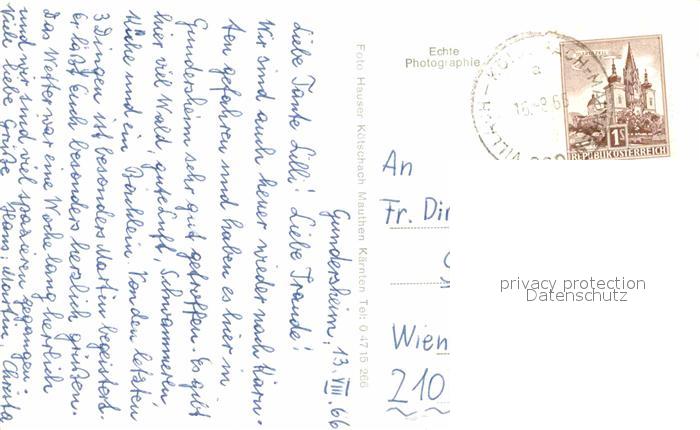 Gundersheim, 13. VIII. 66
Liebe Tante Lilli! Liebe Traude!
Wir sind auch heuer wieder nach Kärn-
ten gefahren und haben es hier in
Gundersheim sehr gut getroffen. Es gibt
hier viel Wald, gute Luft, Schwammerln,
Kühe und ein Bächlein. Von den letzten
3 Dingen ist besonders Martin begeistert.
Er läßt Euch besonders herzlich grüßen.
Das Wetter war eine Woche lang herrlich
und wir sind viel spazieren gegangen.
Viele liebe Grüße Hans, Martin, Christa
Foto Hauser Kötschach Mauthen Kärnten Tel: 0 47 15 266
Echte
Photographie
1S
REPUBLIK ÖSTERREICH
An
Fr. Dir
Wien
210
privacy protection
Datenschutz